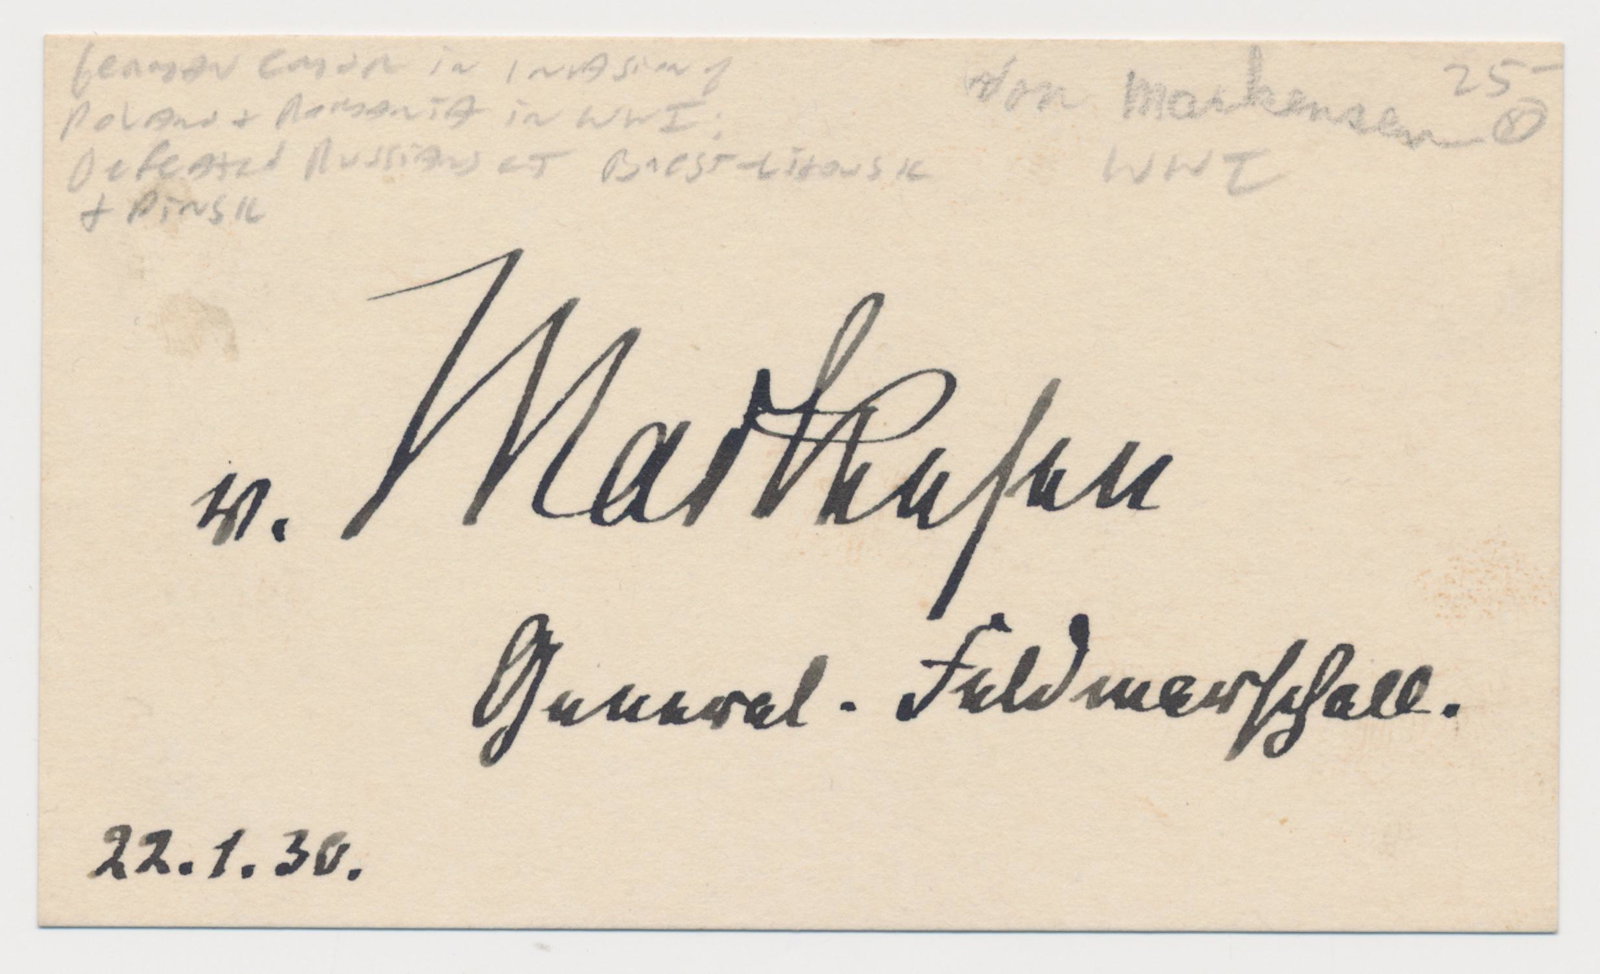 German Comdr in invasion of
Poland + Romania in WWI;
Defeated Russians at Brest-Litovsk
+ Pinsk
Von Mackensen
25-
WWI
v. Mackensen
General-Feldmarschall.
22.1.30.